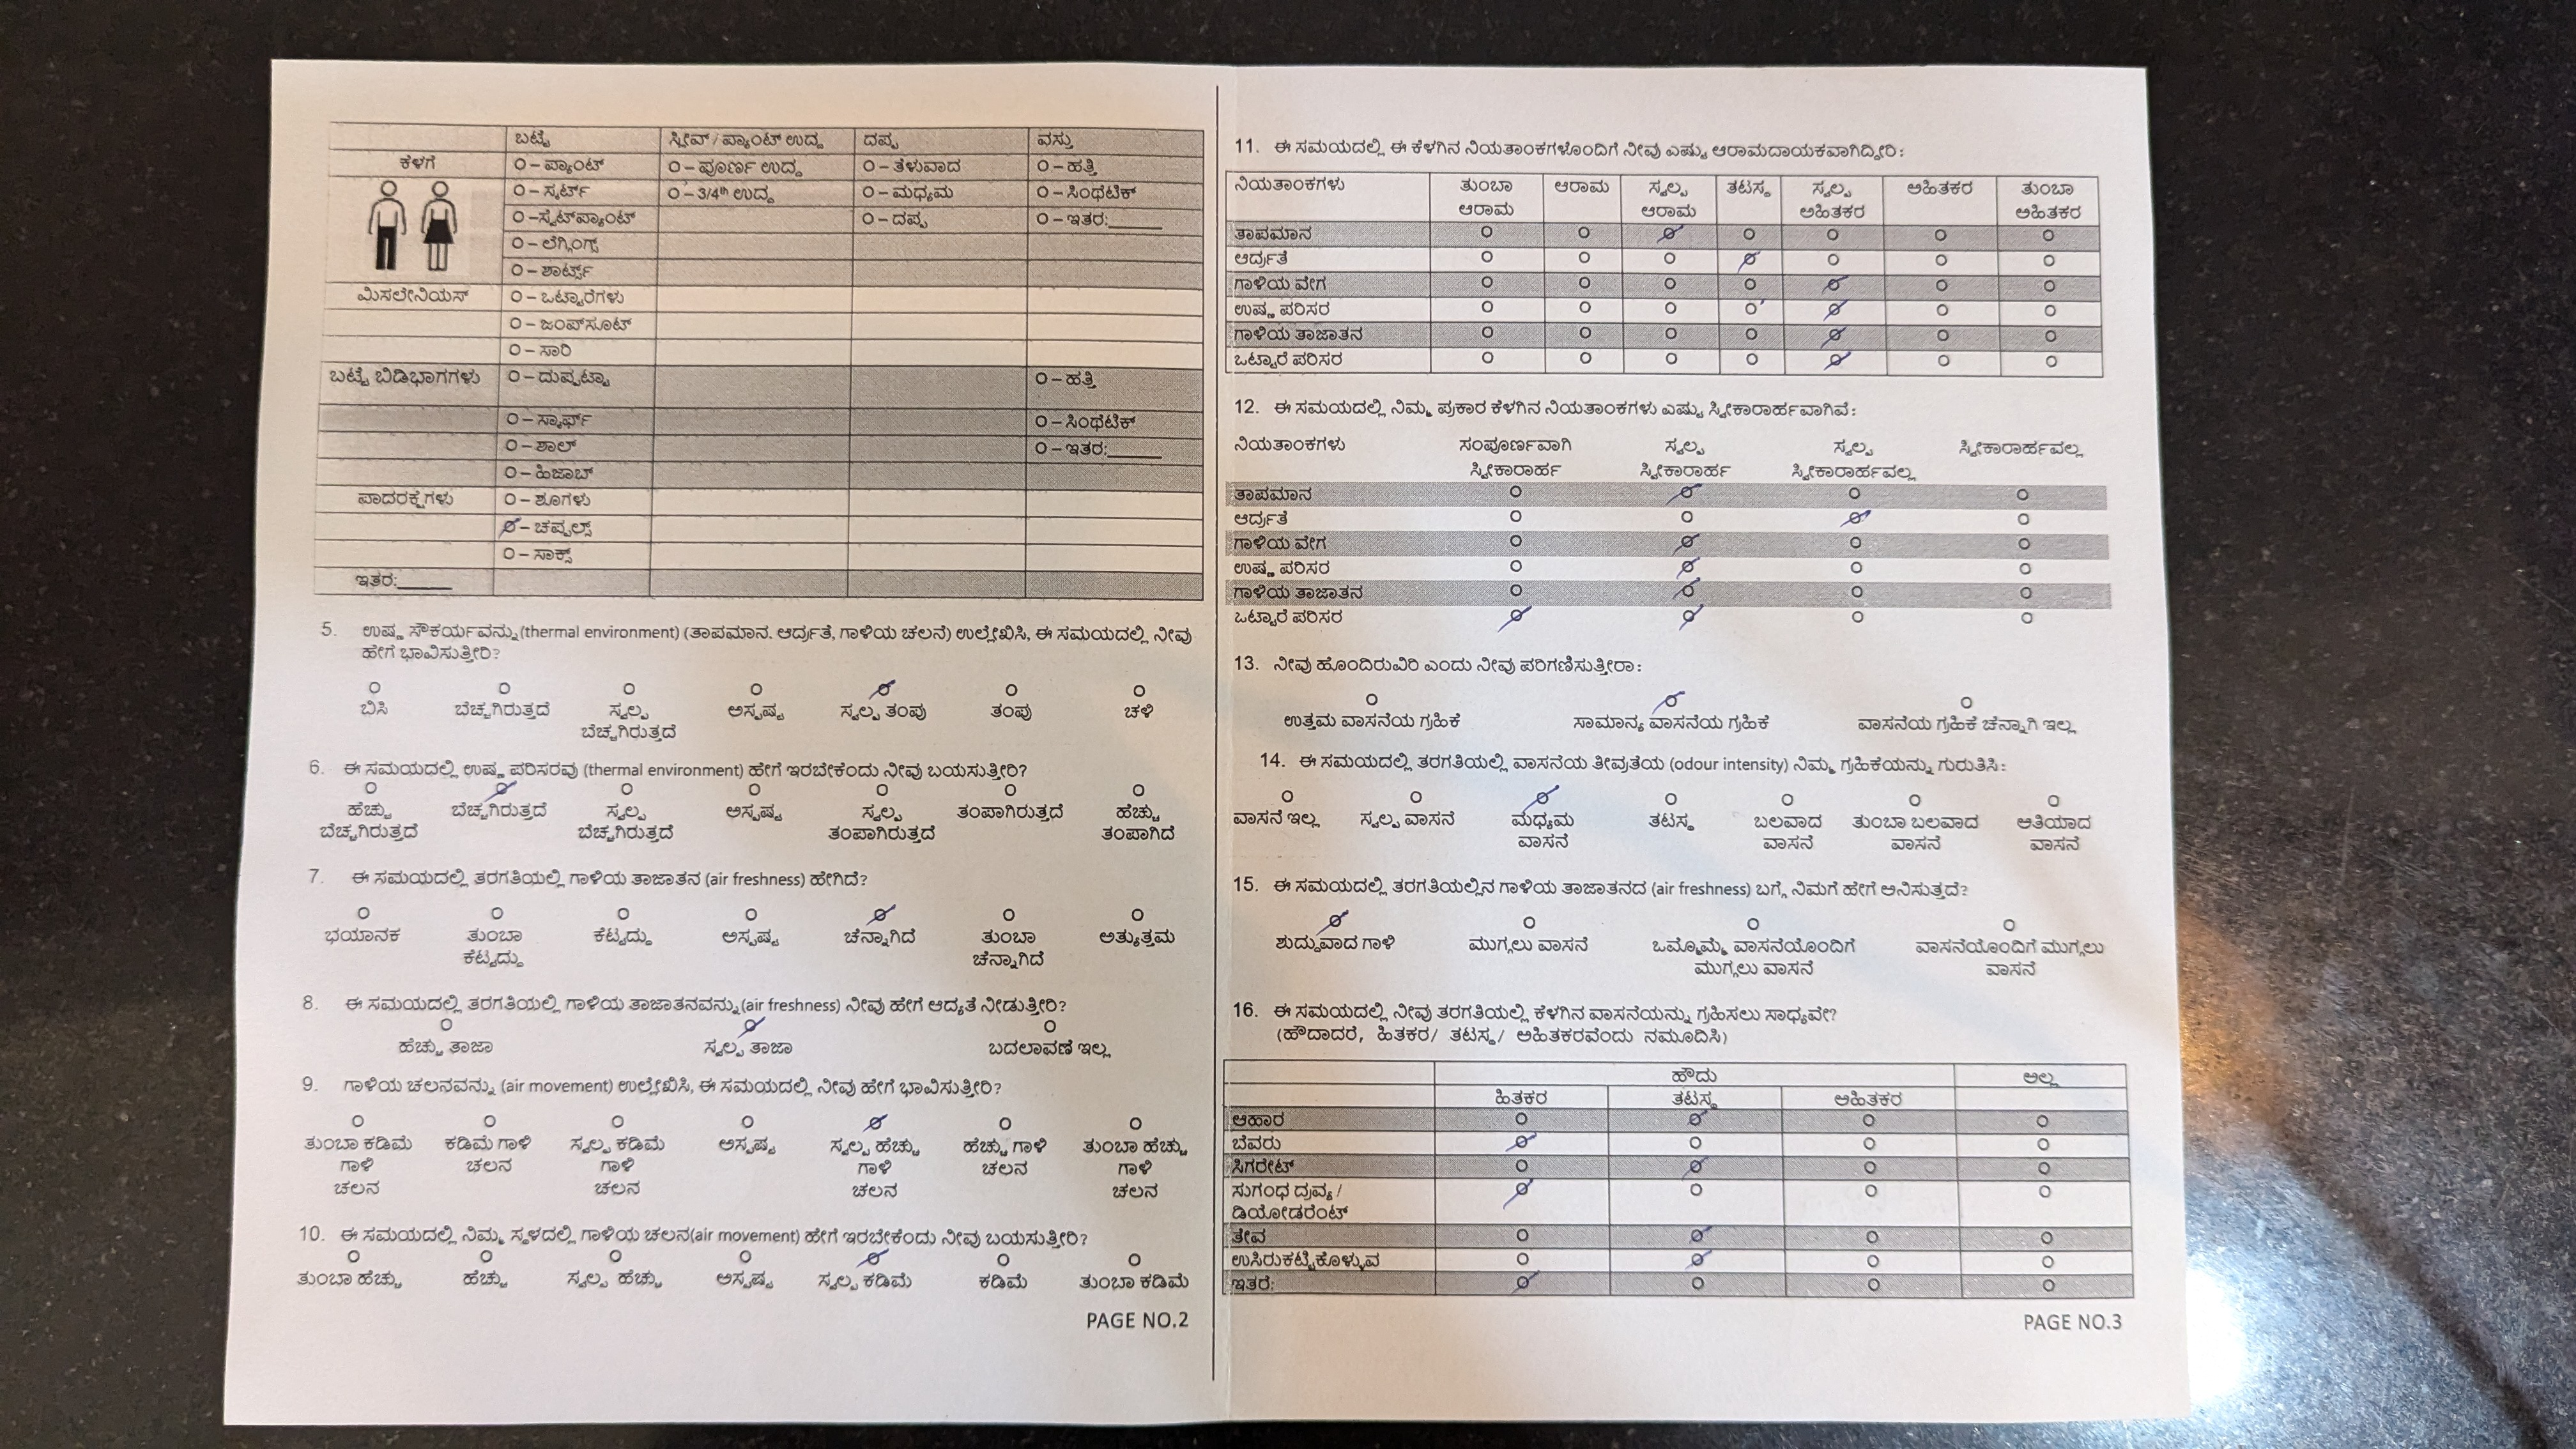 ಬಟ್ಟೆ ಸ್ಲೀವ್ / ಪ್ಯಾಂಟ್ ಉದ್ದ ದಪ್ಪ ವಸ್ತು
ಕೆಳಗೆ O – ಪ್ಯಾಂಟ್ O – ಪೂರ್ಣ ಉದ್ದ O – ತೆಳುವಾದ O – ಹತ್ತಿ
O – ಸ್ಕರ್ಟ್ O – 3/4th ಉದ್ದ O – ಮಧ್ಯಮ O – ಸಿಂಥೆಟಿಕ್
O –ಸ್ವೆಟ್‌ಪ್ಯಾಂಟ್ O – ದಪ್ಪ O – ಇತರ:______
O – ಲೆಗ್ಗಿಂಗ್ಸ್
O – ಶಾರ್ಟ್ಸ್
ಮಿಸಲೇನಿಯಸ್ O – ಒಟ್ಟಾರೆಗಳು
O – ಜಂಪ್‌ಸೂಟ್
O – ಸಾರಿ
ಬಟ್ಟೆ ಬಿಡಿಭಾಗಗಳು O – ದುಪ್ಪಟ್ಟಾ O – ಹತ್ತಿ
O – ಸ್ಕಾರ್ಫ್ O – ಸಿಂಥೆಟಿಕ್
O – ಶಾಲ್ O – ಇತರ:______
O – ಹಿಜಾಬ್
ಪಾದರಕ್ಷೆಗಳು O – ಶೂಗಳು
O – ಚಪ್ಪಲ್ಸ್
O – ಸಾಕ್ಸ್
ಇತರ:______
5. ಉಷ್ಣ ಸೌಕರ್ಯವನ್ನು (thermal environment) (ತಾಪಮಾನ. ಆರ್ದ್ರತೆ, ಗಾಳಿಯ ಚಲನೆ) ಉಲ್ಲೇಖಿಸಿ, ಈ ಸಮಯದಲ್ಲಿ ನೀವು
ಹೇಗೆ ಭಾವಿಸುತ್ತೀರಿ?
O O O O O O O
ಬಿಸಿ ಬೆಚ್ಚಗಿರುತ್ತದೆ ಸ್ವಲ್ಪ ಅಸ್ಪಷ್ಟ ಸ್ವಲ್ಪ ತಂಪು ತಂಪು ಚಳಿ
ಬೆಚ್ಚಗಿರುತ್ತದೆ
6. ಈ ಸಮಯದಲ್ಲಿ ಉಷ್ಣ ಪರಿಸರವು (thermal environment) ಹೇಗೆ ಇರಬೇಕೆಂದು ನೀವು ಬಯಸುತ್ತೀರಿ?
O O O O O O O
ಹೆಚ್ಚು ಬೆಚ್ಚಗಿರುತ್ತದೆ ಸ್ವಲ್ಪ ಅಸ್ಪಷ್ಟ ಸ್ವಲ್ಪ ತಂಪಾಗಿರುತ್ತದೆ ಹೆಚ್ಚು
ಬೆಚ್ಚಗಿರುತ್ತದೆ ಬೆಚ್ಚಗಿರುತ್ತದೆ ತಂಪಾಗಿರುತ್ತದೆ ತಂಪಾಗಿದೆ
7. ಈ ಸಮಯದಲ್ಲಿ ತರಗತಿಯಲ್ಲಿ ಗಾಳಿಯ ತಾಜಾತನ (air freshness) ಹೇಗಿದೆ?
O O O O O O O
ಭಯಾನಕ ತುಂಬಾ ಕೆಟ್ಟದ್ದು ಅಸ್ಪಷ್ಟ ಚೆನ್ನಾಗಿದೆ ತುಂಬಾ ಅತ್ಯುತ್ತಮ
ಕೆಟ್ಟದ್ದು ಚೆನ್ನಾಗಿದೆ
8. ಈ ಸಮಯದಲ್ಲಿ ತರಗತಿಯಲ್ಲಿ ಗಾಳಿಯ ತಾಜಾತನವನ್ನು (air freshness) ನೀವು ಹೇಗೆ ಆದ್ಯತೆ ನೀಡುತ್ತೀರಿ?
O O O
ಹೆಚ್ಚು ತಾಜಾ ಸ್ವಲ್ಪ ತಾಜಾ ಬದಲಾವಣೆ ಇಲ್ಲ
9. ಗಾಳಿಯ ಚಲನವನ್ನು (air movement) ಉಲ್ಲೇಖಿಸಿ, ಈ ಸಮಯದಲ್ಲಿ ನೀವು ಹೇಗೆ ಭಾವಿಸುತ್ತೀರಿ?
O O O O O O O
ತುಂಬಾ ಕಡಿಮೆ ಕಡಿಮೆ ಗಾಳಿ ಸ್ವಲ್ಪ ಕಡಿಮೆ ಅಸ್ಪಷ್ಟ ಸ್ವಲ್ಪ ಹೆಚ್ಚು ಹೆಚ್ಚು ಗಾಳಿ ತುಂಬಾ ಹೆಚ್ಚು
ಗಾಳಿ ಚಲನ ಗಾಳಿ ಗಾಳಿ ಚಲನ ಗಾಳಿ
ಚಲನ ಚಲನ ಚಲನ ಚಲನ
10. ಈ ಸಮಯದಲ್ಲಿ ನಿಮ್ಮ ಸ್ಥಳದಲ್ಲಿ ಗಾಳಿಯ ಚಲನ(air movement) ಹೇಗೆ ಇರಬೇಕೆಂದು ನೀವು ಬಯಸುತ್ತೀರಿ?
O O O O O O O
ತುಂಬಾ ಹೆಚ್ಚು ಹೆಚ್ಚು ಸ್ವಲ್ಪ ಹೆಚ್ಚು ಅಸ್ಪಷ್ಟ ಸ್ವಲ್ಪ ಕಡಿಮೆ ಕಡಿಮೆ ತುಂಬಾ ಕಡಿಮೆ
PAGE NO.2
11. ಈ ಸಮಯದಲ್ಲಿ ಈ ಕೆಳಗಿನ ನಿಯತಾಂಕಗಳೊಂದಿಗೆ ನೀವು ಎಷ್ಟು ಆರಾಮದಾಯಕವಾಗಿದ್ದೀರಿ:
ನಿಯತಾಂಕಗಳು ತುಂಬಾ ಆರಾಮ ಸ್ವಲ್ಪ ತಟಸ್ಥ ಸ್ವಲ್ಪ ಅಹಿತಕರ ತುಂಬಾ
ಆರಾಮ ಆರಾಮ ಅಹಿತಕರ ಅಹಿತಕರ
ತಾಪಮಾನ O O O O O O O
ಆರ್ದ್ರತೆ O O O O O O O
ಗಾಳಿಯ ವೇಗ O O O O O O O
ಉಷ್ಣ ಪರಿಸರ O O O O O O O
ಗಾಳಿಯ ತಾಜಾತನ O O O O O O O
ಒಟ್ಟಾರೆ ಪರಿಸರ O O O O O O O
12. ಈ ಸಮಯದಲ್ಲಿ ನಿಮ್ಮ ಪ್ರಕಾರ ಕೆಳಗಿನ ನಿಯತಾಂಕಗಳು ಎಷ್ಟು ಸ್ವೀಕಾರಾರ್ಹವಾಗಿವೆ:
ನಿಯತಾಂಕಗಳು ಸಂಪೂರ್ಣವಾಗಿ ಸ್ವಲ್ಪ ಸ್ವಲ್ಪ ಸ್ವೀಕಾರಾರ್ಹವಲ್ಲ
ಸ್ವೀಕಾರಾರ್ಹ ಸ್ವೀಕಾರಾರ್ಹ ಸ್ವೀಕಾರಾರ್ಹವಲ್ಲ
ತಾಪಮಾನ O O O O
ಆರ್ದ್ರತೆ O O O O
ಗಾಳಿಯ ವೇಗ O O O O
ಉಷ್ಣ ಪರಿಸರ O O O O
ಗಾಳಿಯ ತಾಜಾತನ O O O O
ಒಟ್ಟಾರೆ ಪರಿಸರ O O O O
13. ನೀವು ಹೊಂದಿರುವಿರಿ ಎಂದು ನೀವು ಪರಿಗಣಿಸುತ್ತೀರಾ:
O O O
ಉತ್ತಮ ವಾಸನೆಯ ಗ್ರಹಿಕೆ ಸಾಮಾನ್ಯ ವಾಸನೆಯ ಗ್ರಹಿಕೆ ವಾಸನೆಯ ಗ್ರಹಿಕೆ ಚೆನ್ನಾಗಿ ಇಲ್ಲ
14. ಈ ಸಮಯದಲ್ಲಿ ತರಗತಿಯಲ್ಲಿ ವಾಸನೆಯ ತೀವ್ರತೆಯ (odour intensity) ನಿಮ್ಮ ಗ್ರಹಿಕೆಯನ್ನು ಗುರುತಿಸಿ:
O O O O O O O
ವಾಸನೆ ಇಲ್ಲ ಸ್ವಲ್ಪ ವಾಸನೆ ಮಧ್ಯಮ ತಟಸ್ಥ ಬಲವಾದ ತುಂಬಾ ಬಲವಾದ ಅತಿಯಾದ
ವಾಸನೆ ವಾಸನೆ ವಾಸನೆ ವಾಸನೆ
15. ಈ ಸಮಯದಲ್ಲಿ ತರಗತಿಯಲ್ಲಿನ ಗಾಳಿಯ ತಾಜಾತನದ (air freshness) ಬಗ್ಗೆ ನಿಮಗೆ ಹೇಗೆ ಅನಿಸುತ್ತದೆ?
O O O O
ಶುದ್ದುವಾದ ಗಾಳಿ ಮುಗ್ಗಲು ವಾಸನೆ ಒಮ್ಮೊಮ್ಮೆ ವಾಸನೆಯೊಂದಿಗೆ ವಾಸನೆಯೊಂದಿಗೆ ಮುಗ್ಗಲು
ಮುಗ್ಗಲು ವಾಸನೆ ವಾಸನೆ
16. ಈ ಸಮಯದಲ್ಲಿ ನೀವು ತರಗತಿಯಲ್ಲಿ ಕೆಳಗಿನ ವಾಸನೆಯನ್ನು ಗ್ರಹಿಸಲು ಸಾಧ್ಯವೇ?
(ಹೌದಾದರೆ, ಹಿತಕರ/ ತಟಸ್ಥ/ ಅಹಿತಕರವೆಂದು ನಮೂದಿಸಿ)
ಹೌದು ಅಲ್ಲ
ಹಿತಕರ ತಟಸ್ಥ ಅಹಿತಕರ
ಆಹಾರ O O O O
ಬೆವರು O O O O
ಸಿಗರೇಟ್ O O O O
ಸುಗಂಧ ದ್ರವ್ಯ / O O O O
ಡಿಯೋಡರೆಂಟ್
ತೇವ O O O O
ಉಸಿರುಕಟ್ಟಿಕೊಳ್ಳುವ O O O O
ಇತರೆ: O O O O
PAGE NO.3